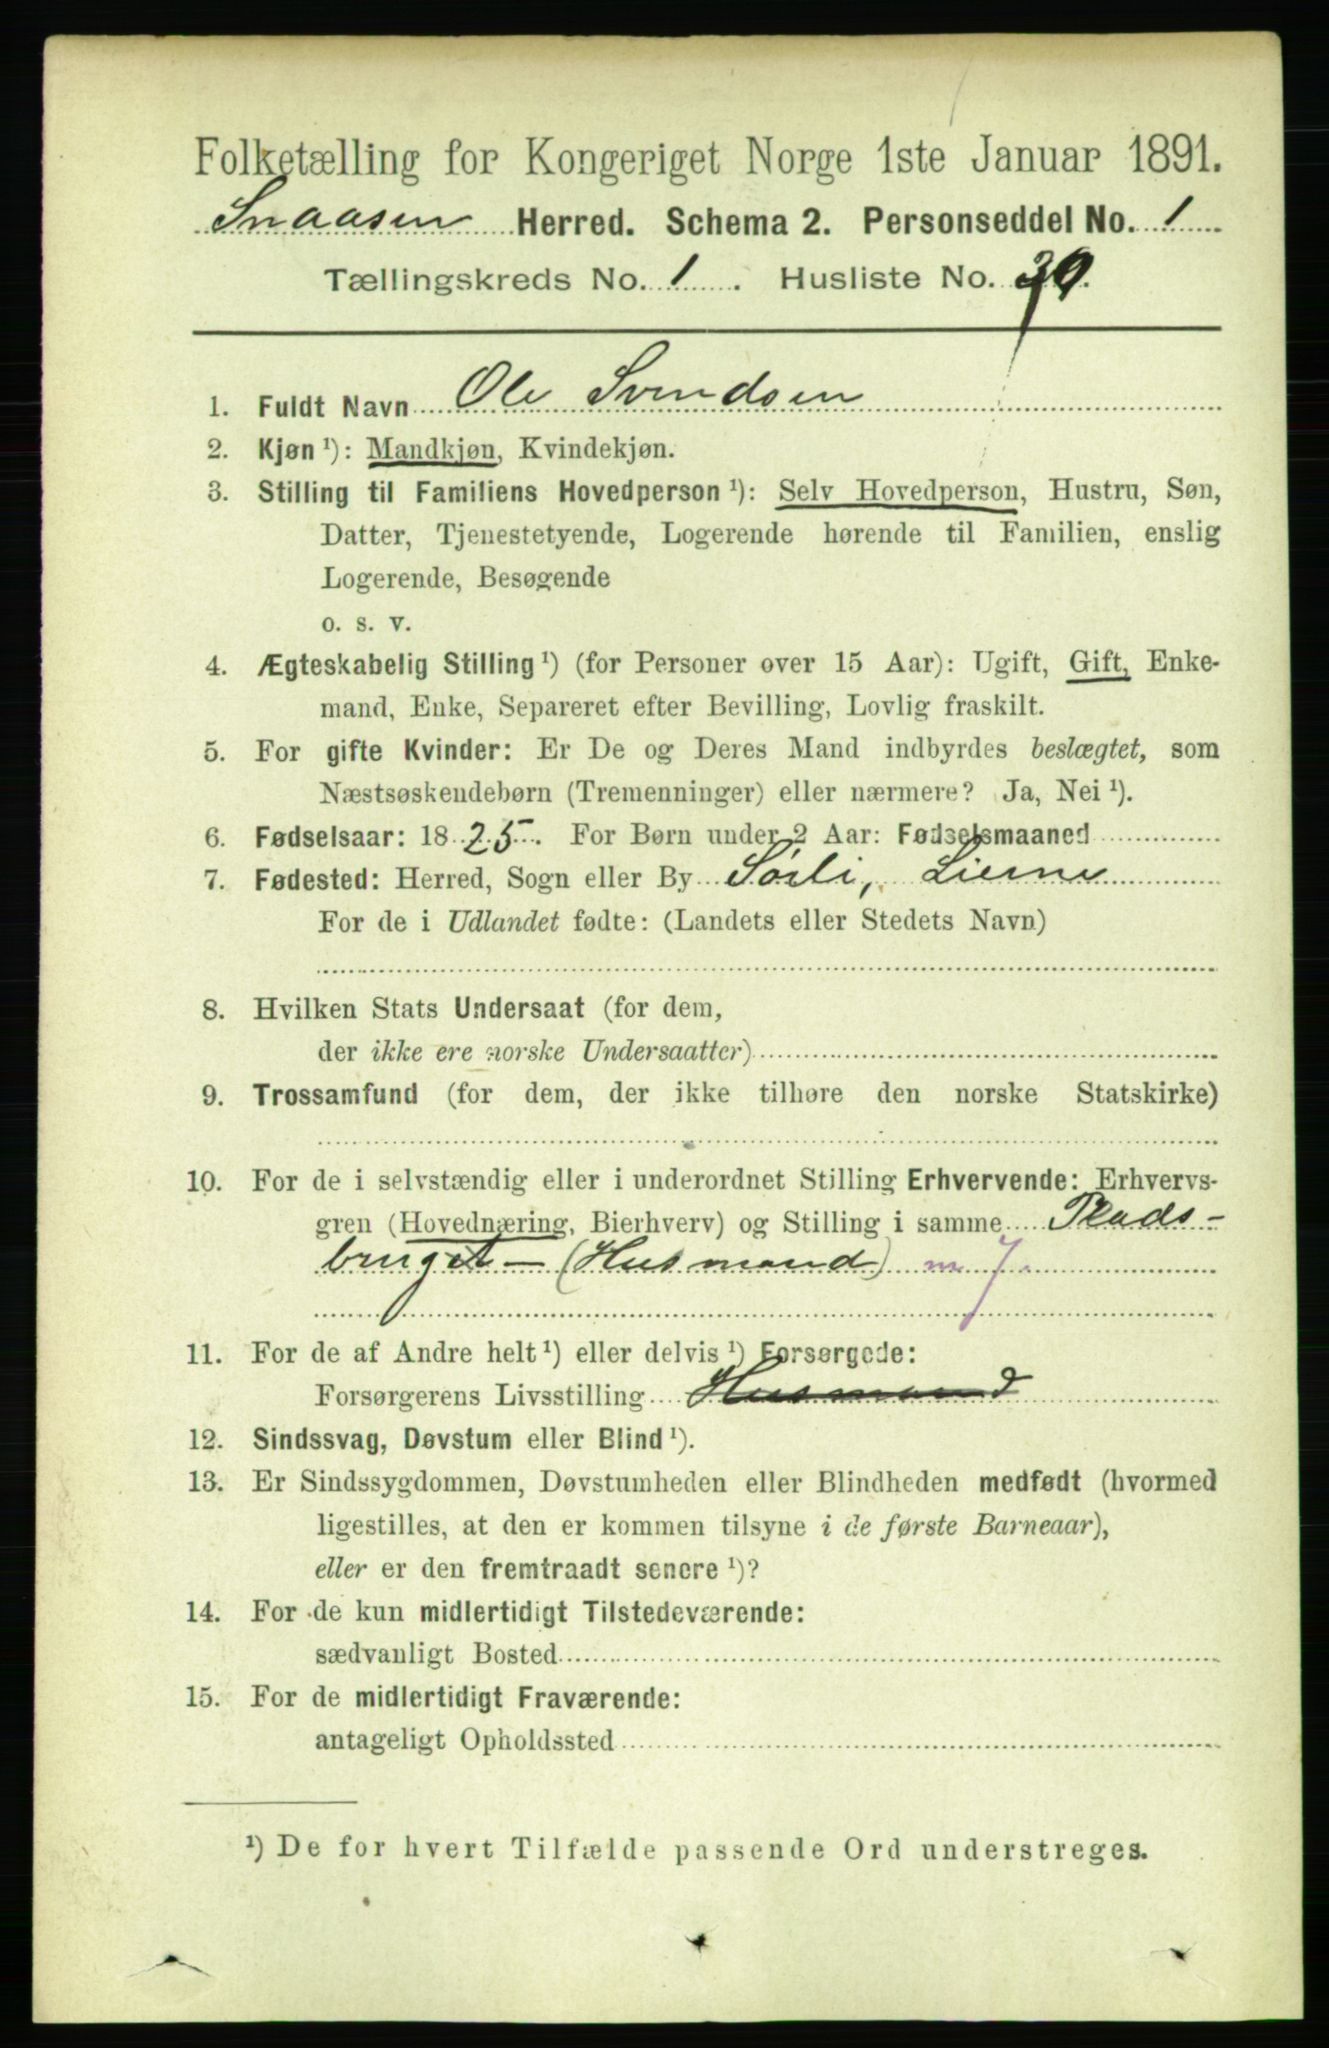 Folketælling for Kongeriget Norge 1ste Januar 1891.
Snaasen Herred. Schema 2. Personseddel No. 1
Tællingskreds No. 1. Husliste No. 39.
1. Fuldt Navn Ole Svendsen
2. Kjøn ¹): Mandkjøn, Kvindekjøn.
3. Stilling til Familiens Hovedperson ¹): Selv Hovedperson, Hustru, Søn,
Datter, Tjenestetyende, Logerende hørende til Familien, enslig
Logerende, Besøgende
o. s. v.
4. Ægteskabelig Stilling ¹) (for Personer over 15 Aar): Ugift, Gift, Enke-
mand, Enke, Separeret efter Bevilling, Lovlig fraskilt.
5. For gifte Kvinder: Er De og Deres Mand indbyrdes beslægtet, som
Næstsøskendebørn (Tremenninger) eller nærmere? Ja, Nei ¹).
6. Fødselsaar: 1825. For Børn under 2 Aar: Fødselsmaaned
7. Fødested: Herred, Sogn eller By Sørli, Lierne
For de i Udlandet fødte: (Landets eller Stedets Navn)
8. Hvilken Stats Undersaat (for dem,
der ikke ere norske Undersaatter)
9. Trossamfund (for dem, der ikke tilhøre den norske Statskirke)
10. For de i selvstændig eller i underordnet Stilling Erhvervende: Erhvervs-
gren (Hovednæring, Bierhverv) og Stilling i samme Plads-
bruget - (Husmand) m 7.
11. For de af Andre helt ¹) eller delvis ¹) Forsørgede:
Forsørgerens Livsstilling Husmand
12. Sindssvag, Døvstum eller Blind ¹).
13. Er Sindssygdommen, Døvstumheden eller Blindheden medfødt (hvormed
ligestilles, at den er kommen tilsyne i de første Barneaar),
eller er den fremtraadt senere ¹)?
14. For de kun midlertidigt Tilstedeværende:
sædvanligt Bosted
15. For de midlertidigt Fraværende:
antageligt Opholdssted
¹) De for hvert Tilfælde passende Ord understreges.